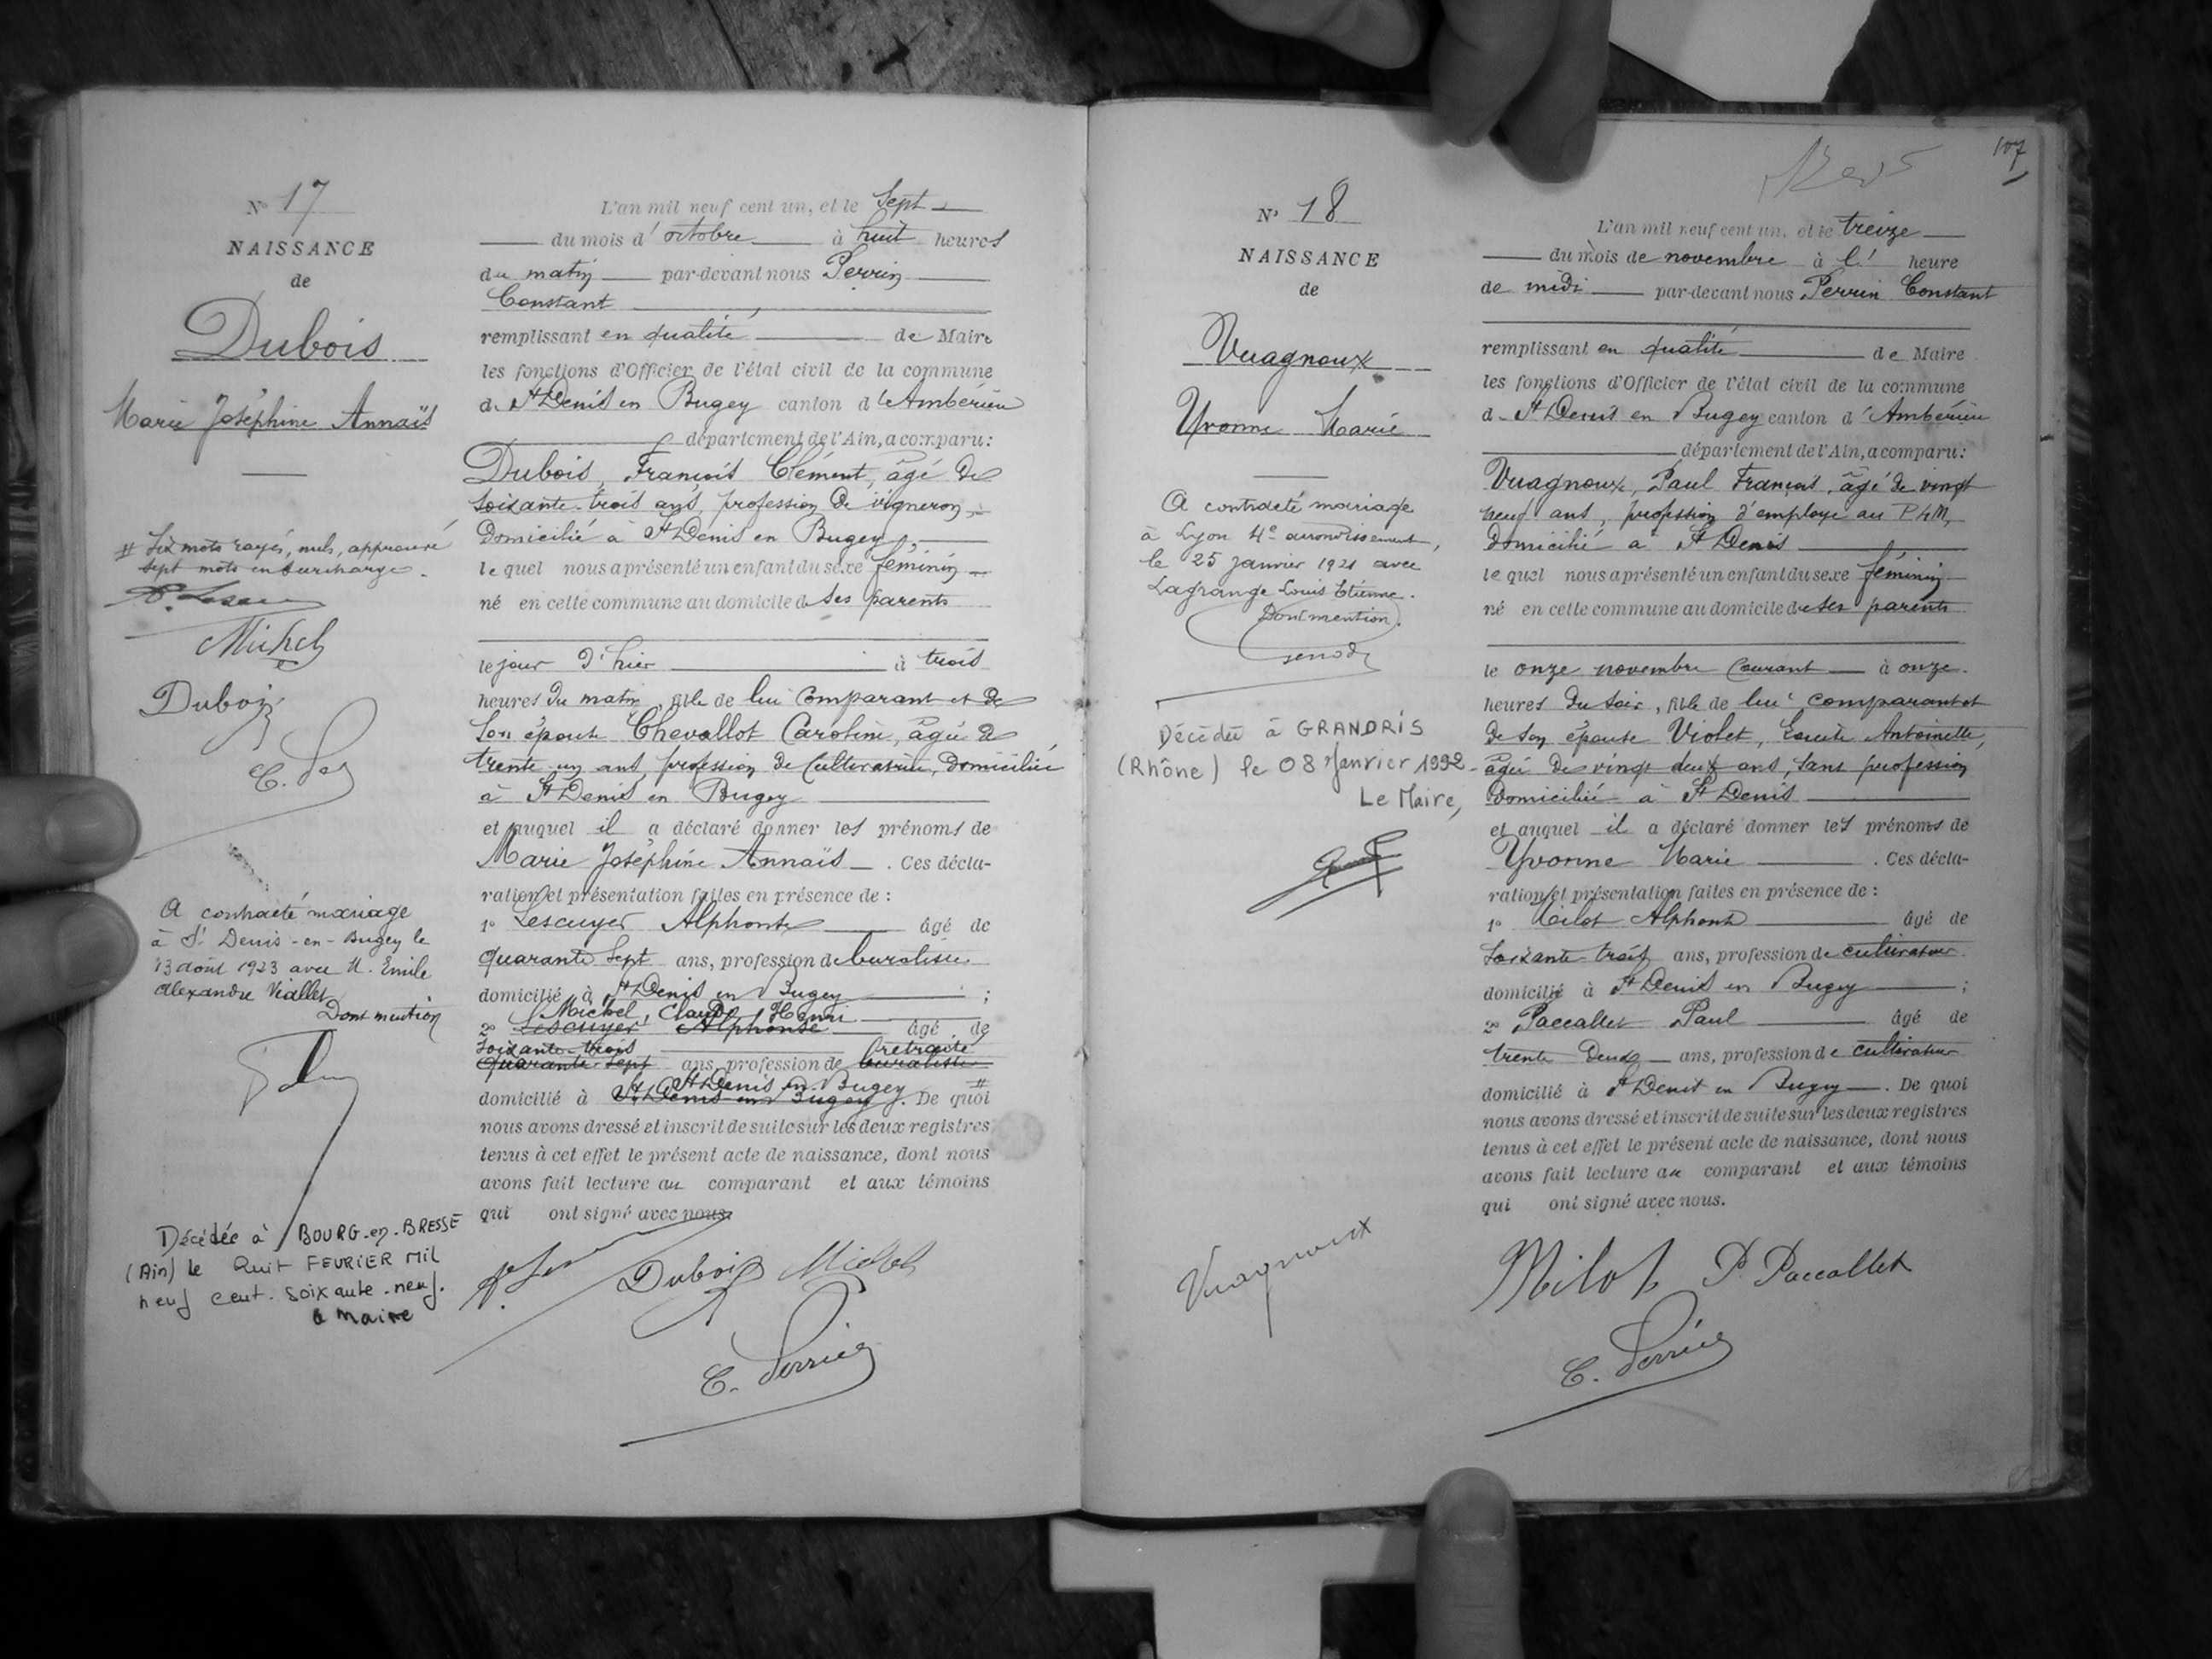 N° 17
NAISSANCE
de
Dubois
Marie Joséphine Annaïs
# Six mots rayés, nuls, approuvé
sept mots en surcharge.
Michel
Dubois
A contracté mariage
à St Denis-en-Bugey le
13 août 1923 avec M. Emile
Alexandre Viallet
Dont mention
Décédée à BOURG-en-BRESSE
(Ain) le Huit FEVRIER Mil
neuf cent soixante-neuf.
le Maire
L'an mil neuf cent un, et le sept
du mois d'octobre à huit heures
du matin par-devant nous Perrin
Constant
remplissant en qualité de Maire
les fonctions d'Officier de l'état civil de la commune
de St Denis en Bugey canton d'Ambérieu
département de l'Ain, a comparu:
Dubois, François Clément, âgé de
soixante-trois ans, profession de vigneron,
domicilié à St Denis en Bugey,
lequel nous a présenté un enfant du sexe féminin
né en cette commune au domicile de ses parents
le jour d'hier à trois
heures du matin, fille de lui comparant et de
son épouse Chevallot Caroline, âgée de
trente-un ans, profession de cultivatrice, domiciliée
à St Denis en Bugey
et auquel il a déclaré donner les prénoms de
Marie Joséphine Annaïs. Ces décla-
ration et présentation faites en présence de :
1° Lescuyer Alphonse âgé de
quarante sept ans, profession de buraliste
domicilié à St Denis en Bugey ;
Michel, Claude Henri
2° Lescuyer Alphonse âgé de
soixante-trois retraité
quarante-sept ans, profession de buraliste
St Denis en Bugey #
domicilié à St Denis en Bugey. De quoi
nous avons dressé et inscrit de suite sur les deux registres
tenus à cet effet le présent acte de naissance, dont nous
avons fait lecture au comparant et aux témoins
qui ont signé avec nous.
Dubois Michel
C. Perrin
107
N° 18
NAISSANCE
de
Vuagnoux
Yvonne Marie
A contracté mariage
à Lyon 4e arrondissement,
le 25 Janvier 1921 avec
Lagrange Louis Etienne.
Dont mention.
Décédée à GRANDRIS
(Rhône) le 08 Janvier 1992
Le Maire,
Vuagnoux
L'an mil neuf cent un, et le treize
du mois de novembre à l' heure
de midi par-devant nous Perrin Constant
remplissant en qualité de Maire
les fonctions d'Officier de l'état civil de la commune
de St Denis en Bugey canton d'Ambérieu
département de l'Ain, a comparu:
Vuagnoux, Paul François, âgé de vingt
neuf ans, profession d'employé au PLM,
domicilié à St Denis
lequel nous a présenté un enfant du sexe féminin
né en cette commune au domicile de ses parents
le onze novembre courant à onze
heures du soir, fille de lui comparant et
de son épouse Violet, Antoinette,
âgée de vingt deux ans, sans profession
domiciliée à St Denis
et auquel il a déclaré donner les prénoms de
Yvonne Marie. Ces décla-
ration et présentation faites en présence de :
1° Milot Alphonse âgé de
soixante-trois ans, profession de cultivateur
domicilié à St Denis en Bugey ;
2° Paccallet Paul âgé de
trente deux ans, profession de cultivateur
domicilié à St Denis en Bugey. De quoi
nous avons dressé et inscrit de suite sur les deux registres
tenus à cet effet le présent acte de naissance, dont nous
avons fait lecture au comparant et aux témoins
qui ont signé avec nous.
Milot P. Paccallet
C. Perrin